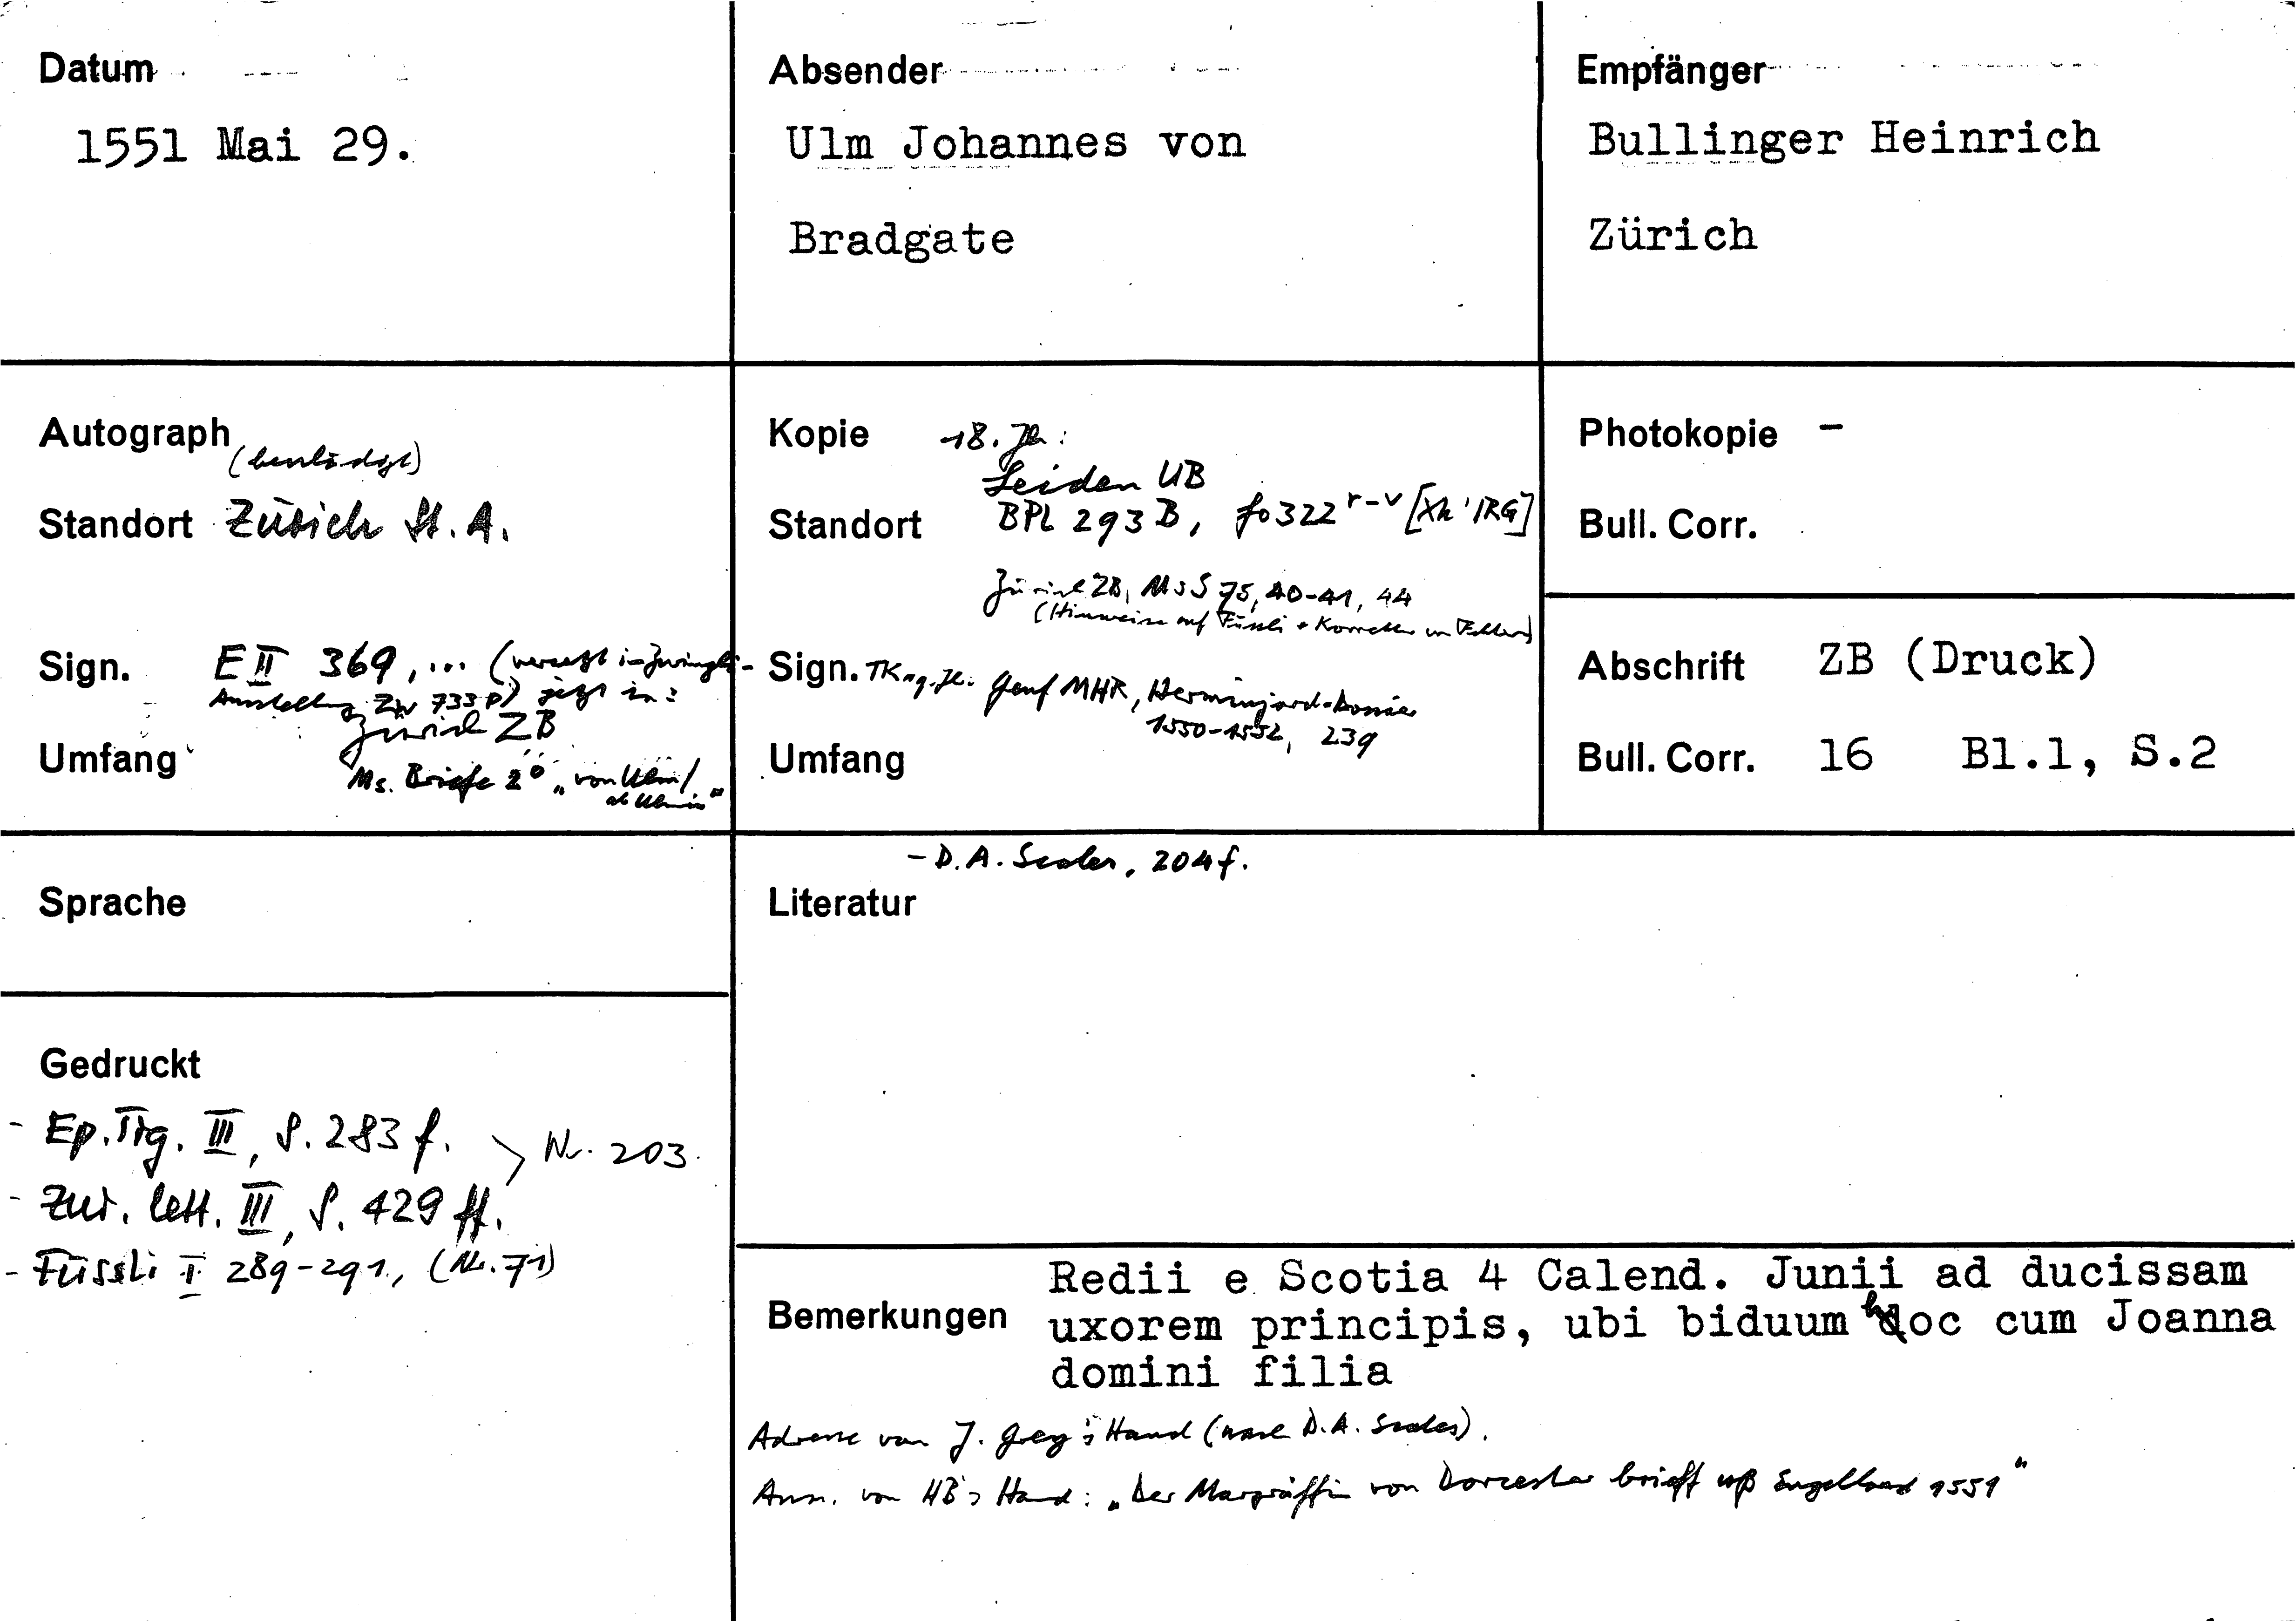 Datum
1551 Mai 29.
Absender
Ulm Johannes von
Bradgate
Empfänger
Bullinger Heinrich
Zürich
Autograph
Standort Zürich St. A.
Sign. E II 369, ... (versetzt in Zwingli-
Ausstellung Zw 733 p) jetzt in:
Zürich ZB
Umfang
Ms. Briefe 2° "von Ulm/
ab Ulmis"
Kopie 18. Jh:
Leiden UB
Standort BPL 293 B, fo 322 r-v
Zürich ZB, Ms S 75, 40-41, 44
(Hinweise auf Füssli + Korrektur von Fehlern)
Sign. Genf MHR, Herminjard-Dossier
1550-1552, 239
Umfang
Photokopie -
Bull. Corr.
Abschrift ZB (Druck)
Bull. Corr. 16 Bl.1, S.2
Sprache
- D.A. Scales, 204 f.
Literatur
Gedruckt
- Ep. Tig. III, S. 283 f. > Nr. 203.
- Zur. lett. III, S. 429 ff.
- Füssli I 289-291, (Nr. 71)
Bemerkungen
Redii e Scotia 4 Calend. Junii ad ducissam
uxorem principis, ubi biduum hoc cum Joanna
domini filia
Adresse von J. Grey's Hand (nach D.A. Scales).
Anm. von HB's Hand: "Der Margräffin von Dorcester brieff uß Engelland 1551"